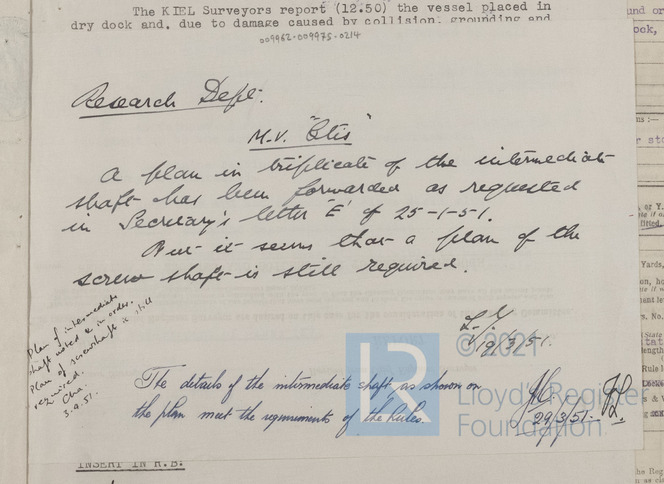 The KIEL Surveyors report (12.50) the vessel placed in
dry dock and, due to damage caused by collision, grounding and
009962-009975-0214
Research Dept.
M.V. "Otis"
A plan in triplicate of the intermediate
shaft has been forwarded as requested
in Secretary's letter 'E' of 25-1-51.
But it seems that a plan of the
screw shaft is still required.
19/3/51.
Plan of intermediate
shaft noted & in order.
Plan of screwshaft is still
required.
3.9.51.
The details of the intermediate shaft, as shown on
the plan meet the requirements of the Rules.
29/3/51.
© 2021
Lloyd's Register
Foundation
INSERT IN R.B.